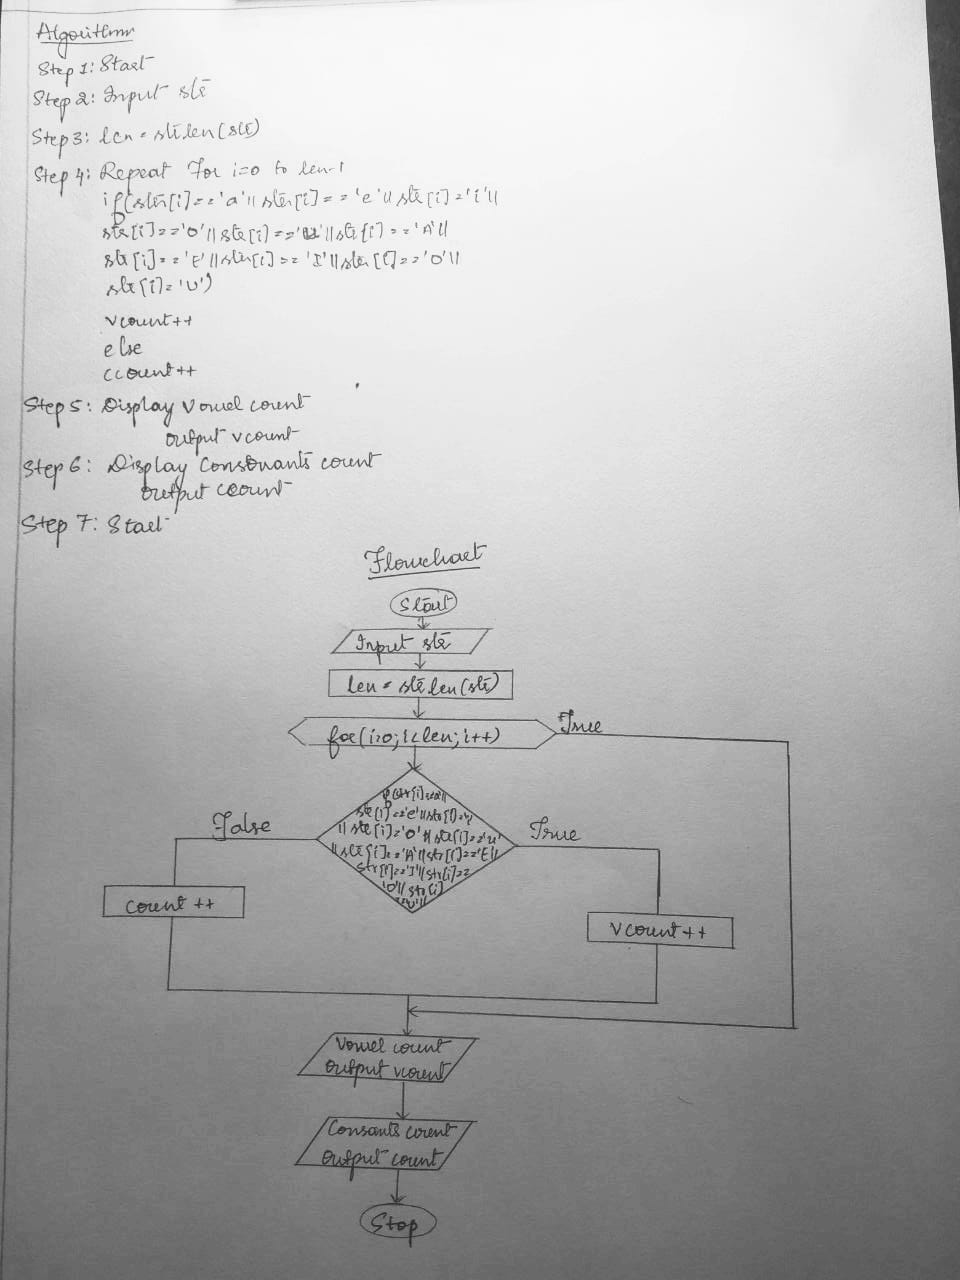 Algorithm
Step 1: Start
Step 2: Input str
Step 3: len = strlen(str)
Step 4: Repeat for i=0 to len-1
if(str[i]=='a'||str[i]=='e'||str[i]='i'||
str[i]=='o'||str[i]=='u'||str[i]=='A'||
str[i]=='E'||str[i]=='I'||str[i]=='O'||
str[i]='U')
vcount++
else
ccount++
Step 5: Display Vowel count
output vcount
Step 6: Display Consonants count
output ccount
Step 7: Start
Flowchart
Start
Input str
len = strlen(str)
for(i=0;i<len;i++)
True
if(str[i]=='a'||
str[i]=='e'||str[i]=='i'
||str[i]='o'||str[i]=='u'
||str[i]=='A'||str[i]=='E'||
str[i]=='I'||str[i]==
'O'||str[i]
=='U'||
False
True
count ++
vcount++
Vowel count
output vcount
Consants count
output count
Stop